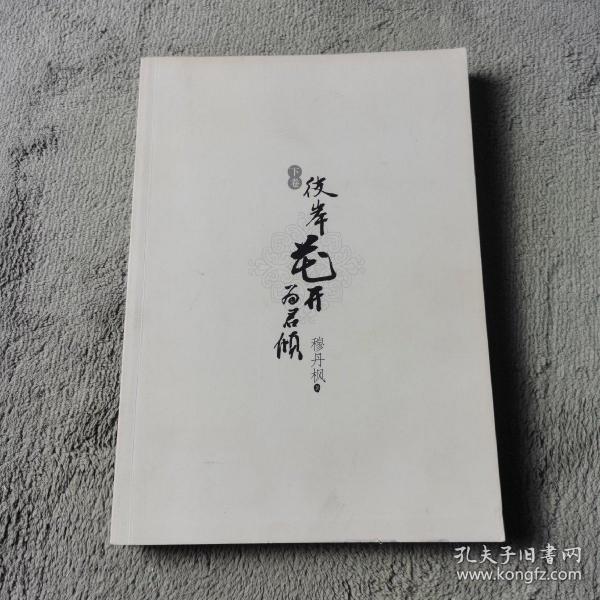 下卷
彼岸
花开
为君倾
穆丹枫 著
孔夫子旧書网
www.kongfz.com